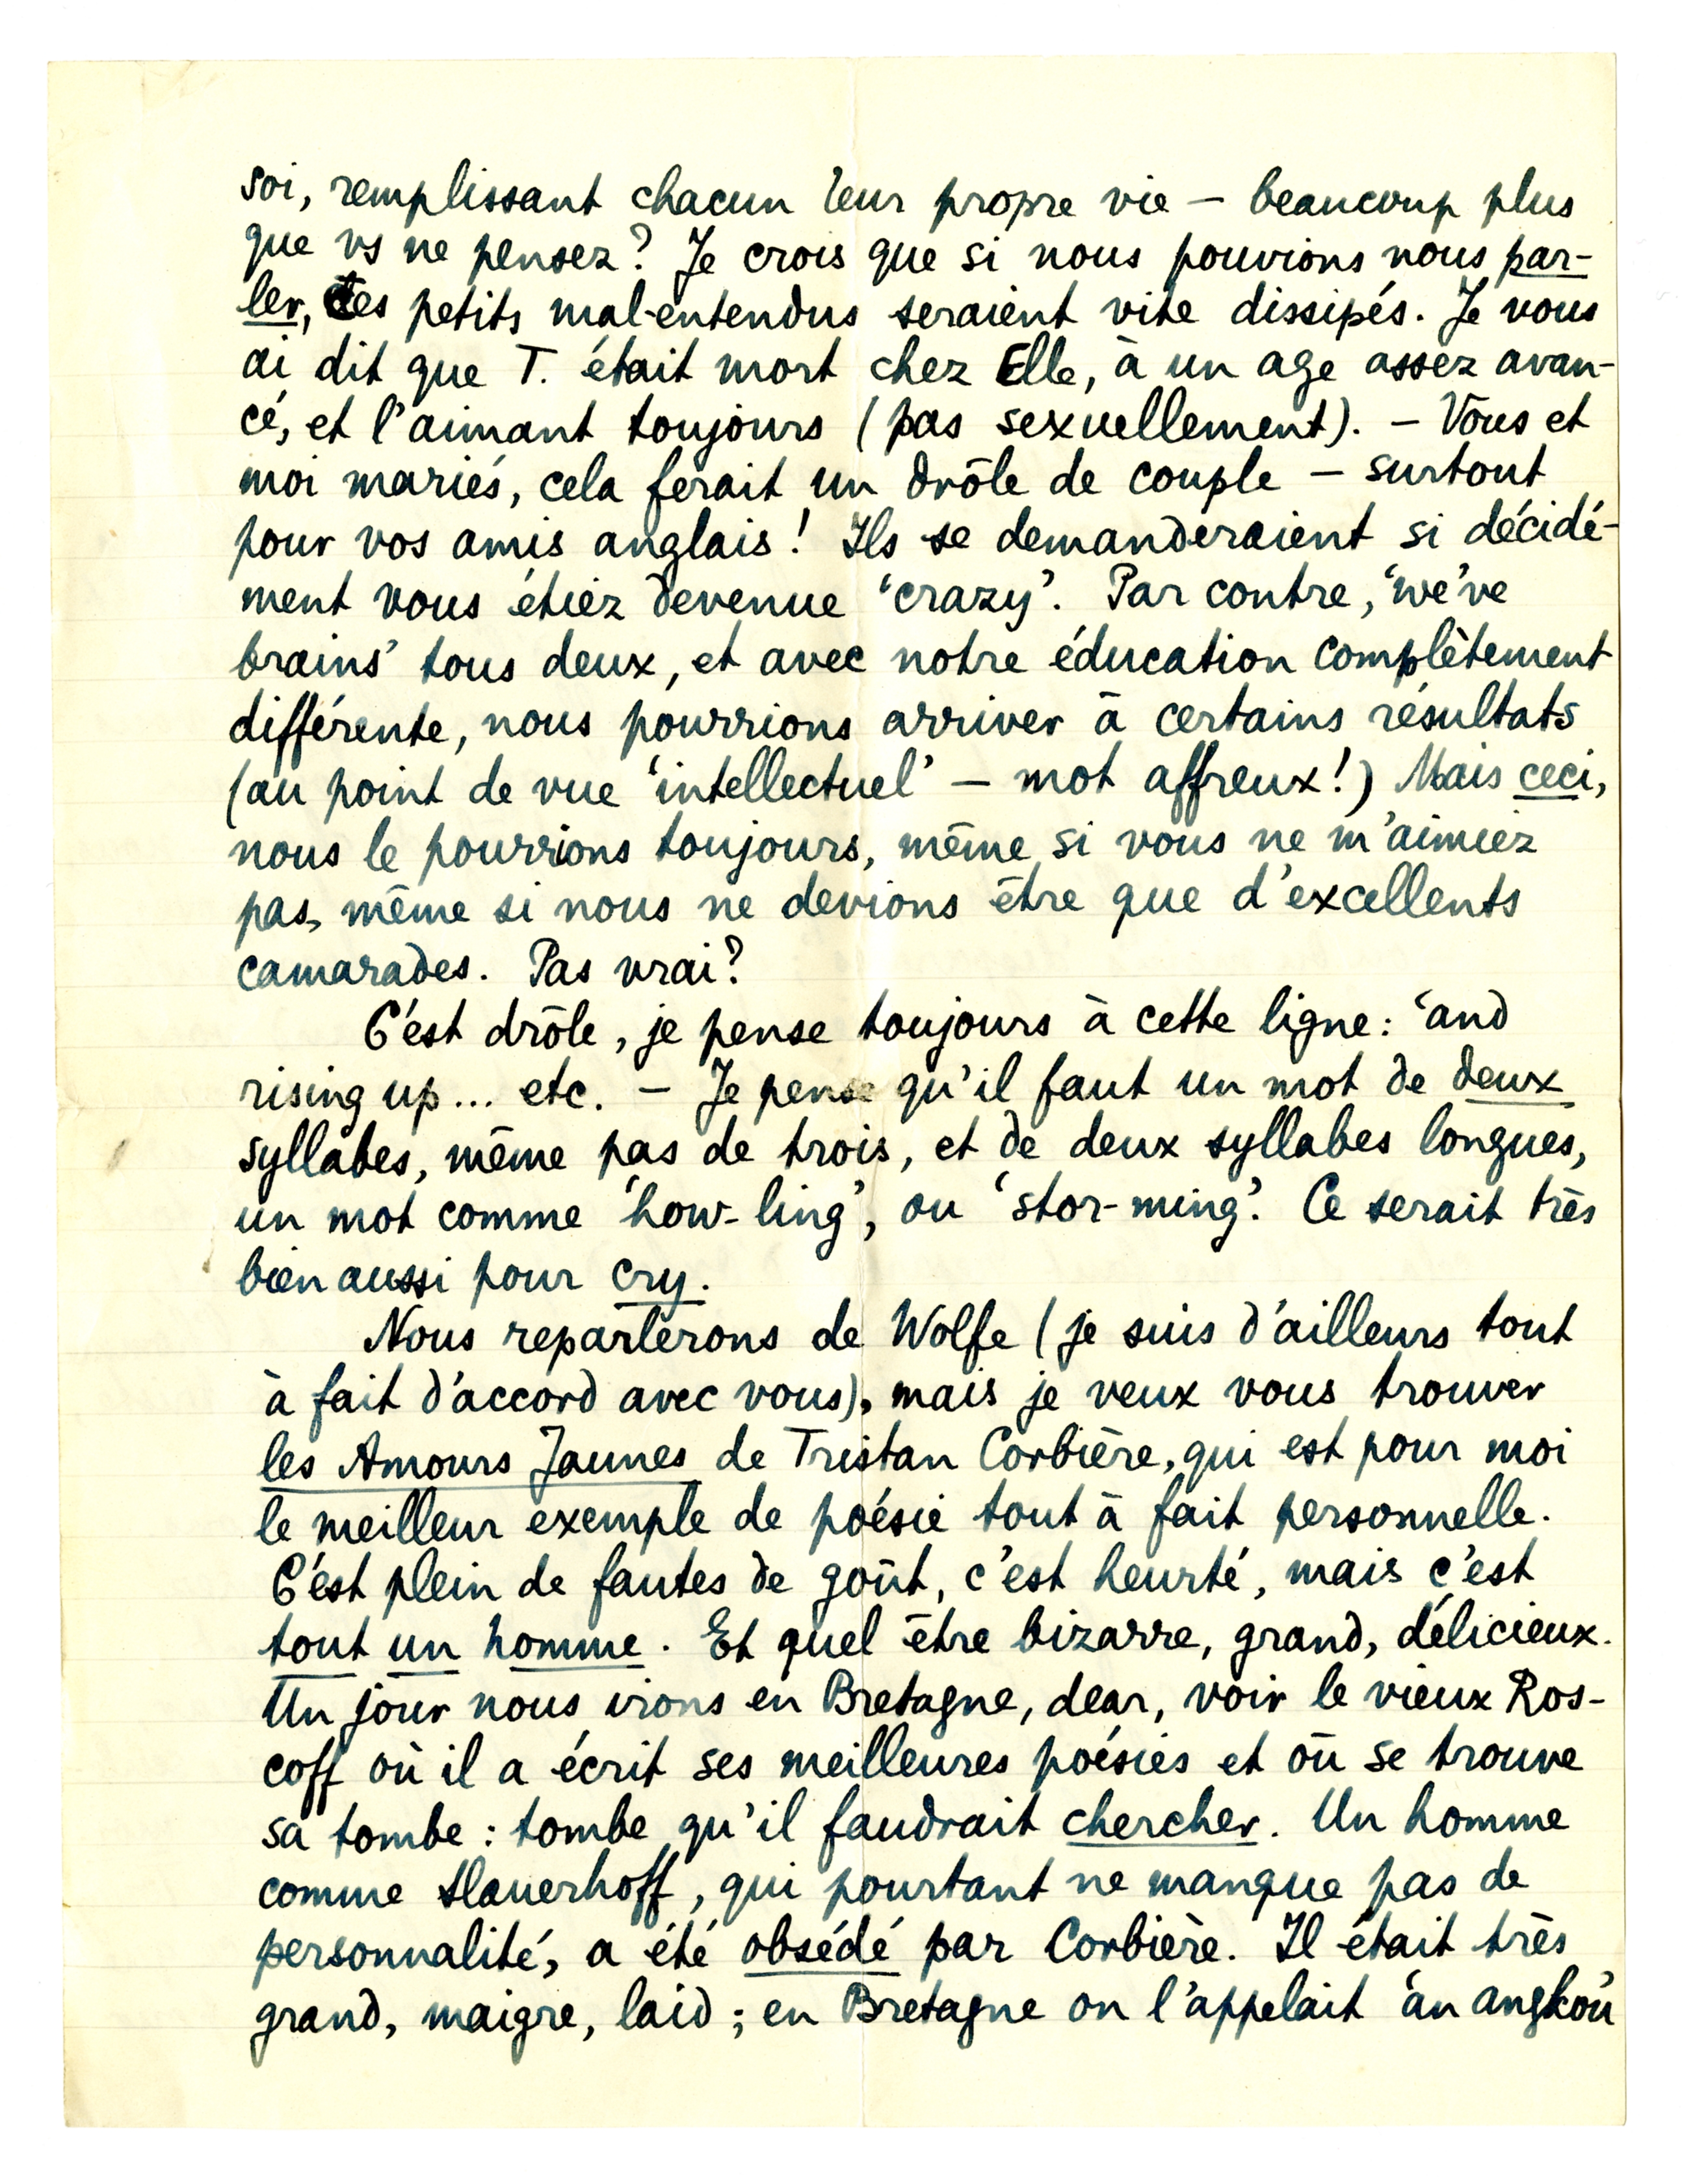 soi, remplissant chacun leur propre vie – beaucoup plus
que vs ne pensez? Je crois que si nous pouvions nous par-
ler, ces petits mal-entendus seraient vite dissipés. Je vous
ai dit que T. était mort chez Elle, à un age assez avan-
cé, et l'aimant toujours (pas sexuellement). – Vous et
moi mariés, cela ferait un drôle de couple – surtout
pour vos amis anglais! Ils se demanderaient si décidé-
ment vous étiez devenue 'crazy'. Par contre, 'we've
brains' tous deux, et avec notre éducation complètement
différente, nous pourrions arriver à certains résultats
(au point de vue 'intellectuel' – mot affreux!) Mais ceci,
nous le pourrions toujours, même si vous ne m'aimiez
pas, même si nous ne devions être que d'excellents
camarades. Pas vrai?
C'est drôle, je pense toujours à cette ligne: 'and
rising up... etc. – Je pense qu'il faut un mot de deux
syllabes, même pas de trois, et de deux syllabes longues,
un mot comme 'how-ling', ou 'stor-ming'. Ce serait très
bien aussi pour cry.
Nous reparlerons de Wolfe (je suis d'ailleurs tout
à fait d'accord avec vous), mais je veux vous trouver
les Amours Jaunes de Tristan Corbière, qui est pour moi
le meilleur exemple de poésie tout à fait personnelle.
C'est plein de fautes de goût, c'est heurté, mais c'est
tout un homme. Et quel être bizarre, grand, délicieux.
Un jour nous irons en Bretagne, dear, voir le vieux Ros-
coff où il a écrit ses meilleures poésies et où se trouve
sa tombe: tombe qu'il faudrait chercher. Un homme
comme Slauerhoff, qui pourtant ne manque pas de
personnalité, a été obsédé par Corbière. Il était très
grand, maigre, laid; en Bretagne on l'appelait 'an angkoù